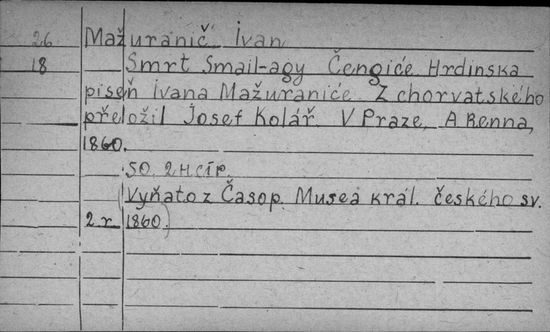 26 Mažuranič Ivan
18 Smrt Smail-agy Čengiće Hrdinska
piseň Ivana Mažuraniće Z chorvatského
přeložil Josef Kolář V Praze, A Renna,
1860.
50. 2 H cír.
(Vyňato z Časop. Musea král. českého sv.
2. r. 1860)